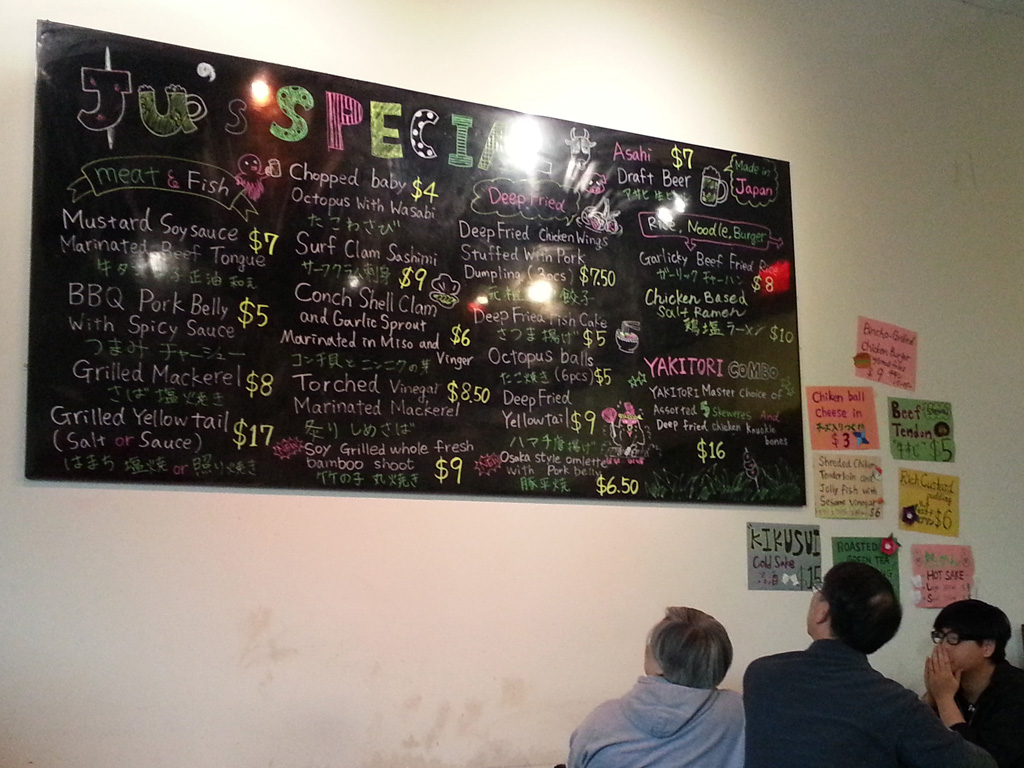 Ju's SPECIAL
meat & Fish
Mustard Soy sauce
Marinated Beef Tongue $7
BBQ Pork Belly
With Spicy Sauce $5
つまみ チャーシュー
Grilled Mackerel $8
さば 塩焼き
Grilled Yellowtail
(Salt or Sauce) $17
はまち 塩焼 or 照り焼き
Chopped baby
Octopus With Wasabi $4
たこわさび
Surf Clam Sashimi
サーフクラム刺身 $9
Conch Shell Clam
and Garlic Sprout
Marinated in Miso and
Vinger $6
コンチ貝とニンニクの芽
Torched Vinegar
Marinated Mackerel $8.50
炙り しめさば
Soy Grilled whole fresh
bamboo shoot $9
竹の子 丸焼き
Deep Fried
Deep Fried Chicken Wings
Stuffed With Pork
Dumpling (3pcs) $7.50
Deep Fried Fish Cake
さつま揚げ $5
Octopus balls
たこ焼き (6pcs) $5
Deep Fried
Yellowtail $9
ハマチ唐揚げ
Osaka style omlette
with Pork belly
豚平焼 $6.50
Asahi $7
Draft Beer
Made in
Japan
Rice, Noodle, Burger
Garlicky Beef Fried Rice
ガーリック チャーハン $8
Chicken Based
Salt Ramen
鶏塩 ラーメン $10
YAKITORI COMBO
YAKITORI Master Choice of
Assorted 5 Skewers And
Deep fried chicken Knuckle
bones
$16
Chicken Burger
$9
Chiken ball
cheese in
$3
Beef
Tendon
$5
Shreded Chiken
Tenderloin and
Jelly fish with
Sesame Vinegar
$6
Rich Custard
pudding
$6
KIKUSUI
Cold Sake
$15
ROASTED
GREEN TEA
HOT SAKE